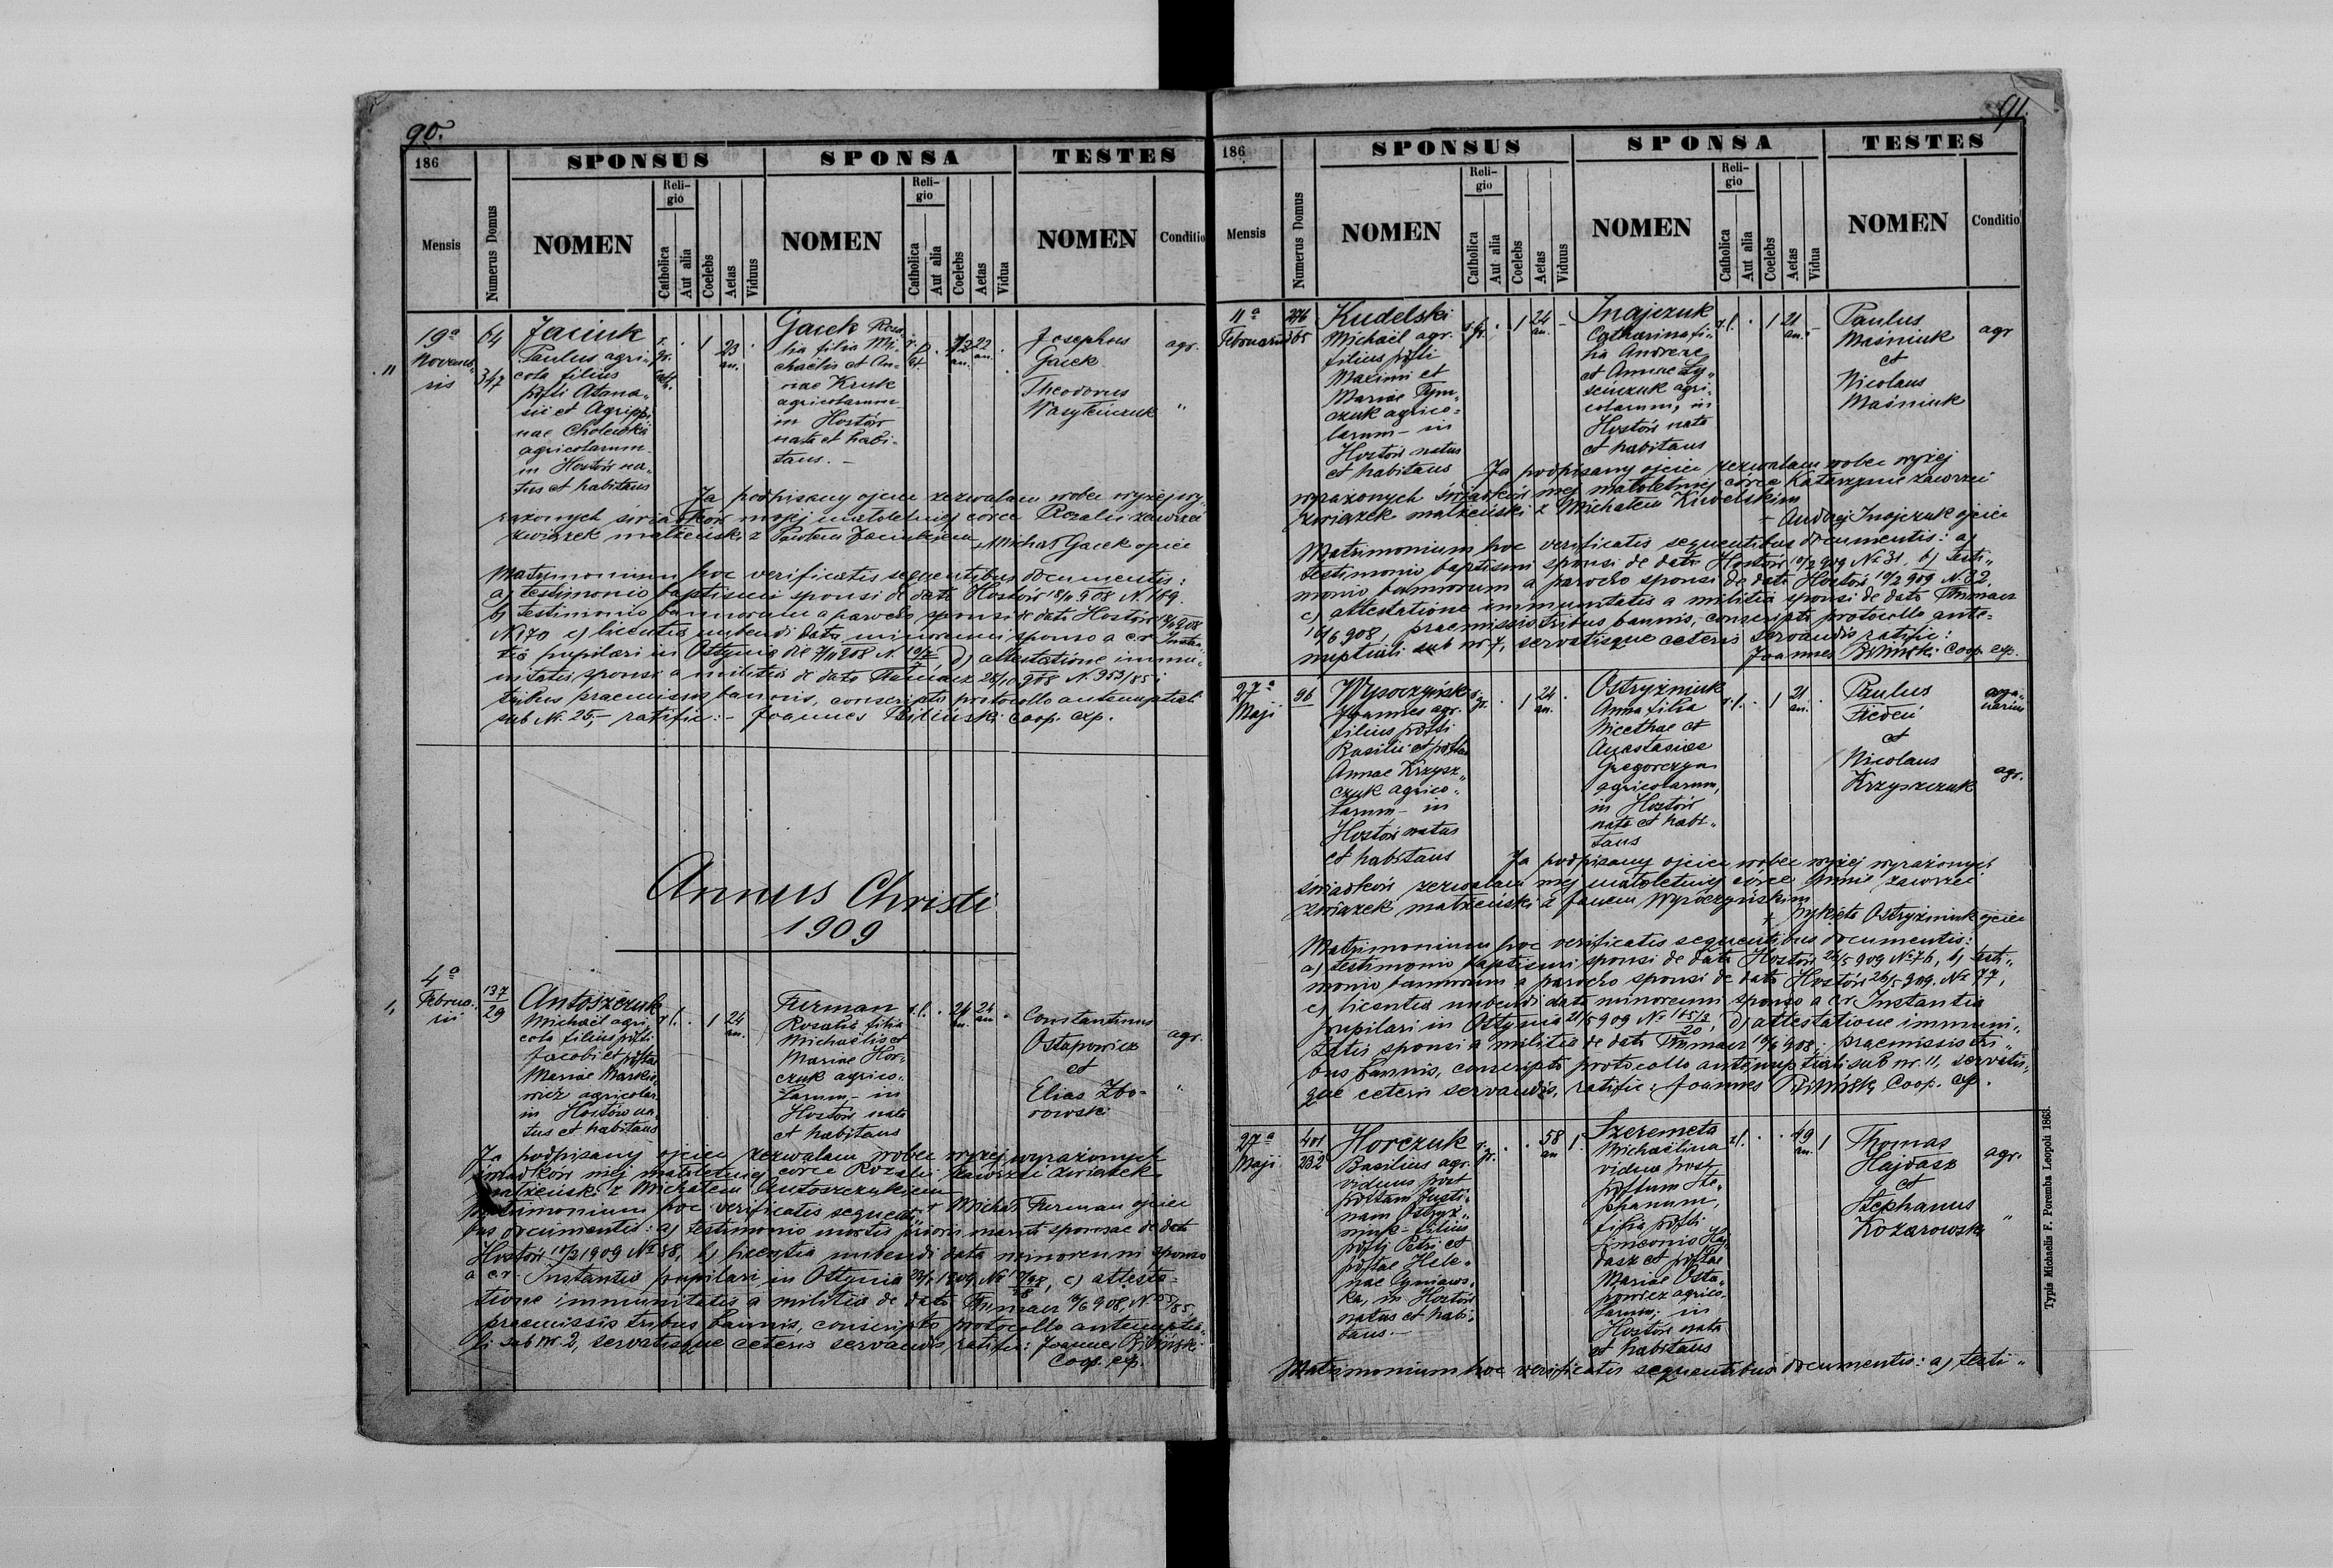 90.
186
SPONSUS
SPONSA
TESTES
Mensis
Numerus Domus
NOMEN
Religio
Catholica
Aut alia
Coelebs
Aetas
Viduus
NOMEN
Religio
Catholica
Aut alia
Coelebs
Aetas
Vidua
NOMEN
Conditio
11
19a
Novembris
64
347
Jaciuk
Paulus agri-
cola filius
Agrippi
nae
agricolarum
in Hostów na-
tus et habitans
r.
gr.
cath.
1
23
an.
Gacek Rosa
lia filia Mi-
chaelis et An-
nae Kruk
agricolarum
in Hostów
nata et habi-
tans. -
22
an.
Josephus
Gacek
Theodorus
Wasyleńczuk
agr.
"
Ja podpisany ojciec zezwalam wobec wyżej wy
rażonych świadków mojej małoletniej córce Rozalii zawrzeć
związek małżeński z Pawłem Jaciukiem
Michał Gacek ojciec
Matrimonium hoc verificatis sequentibus documentis:
a) testimonio baptismi sponsi de dato Hostów 18/11 908 N. 169.
b) testimonio bannorum a parocho sponsi de dato Hostów
N 170 c) licentia nubendi data minorenni sponso a c.r. Instan-
tia pupilari in Ottynia d) attestatione immu-
nitatis sponsi a militia de dato Tłumacz
tribus praemissis bannis, conscripto protocollo antenuptiali
sub Nr. 25,- ratific:- Joannes Biliński coop. exp.
Annus Christi
1909
1,
4a
Februa-
rii
137
29
Antoszczuk
Michaël agri
cola filius pstti
Jacobi et psttae
Mariae
wicz agricolar.
in Hostów na-
tus et habitans
r.l.
1
24
an.
Furman
Rosalia filia
Michaelis et
Mariae Hor-
czuk agrico-
larum - in
Hostów nata
et habitans
r.l.
24
an.
Constantinus
Ostapowicz
et
Elias Zbo-
rowski
agr.
"
Ja podpisany ojciec zezwalam wobec wyżej wyrażonych
świadków mej małoletniej córce Rozalii zawrzeć związek
małżeński z Michałem Antoszczukiem
Michał Furman ojciec
Matrimonium hoc verificatis sequenti-
bus documentis: a) testimonio mortis prioris mariti sponsae de dato
Hostów 1909 b) licentia nubendi data minorenni sponso
a c.r. Instantia pupilari in Ottynia c) attesta-
tione immunitatis a militia de dato Tłumacz
praemissis tribus bannis, conscripto protocollo antenuptia-
li sub nr. 2, servatisque ceteris servandis, ratific: Joannes Biliński
Coop. exp.
91.
186
SPONSUS
SPONSA
TESTES
Mensis
Numerus Domus
NOMEN
Religio
Catholica
Aut alia
Coelebs
Aetas
Viduus
NOMEN
Religio
Catholica
Aut alia
Coelebs
Aetas
Vidua
NOMEN
Conditio
11a
Februarii
276
365
Kudelski
Michaël agr.
filius pstti
Maximi et
Mariae Tym-
czuk agrico-
larum - in
Hostów natus
et habitans
r. gr.
1
24
an.
Inajczuk
Catharina fi-
lia Andreae
et Annae Ły-
seńczuk agri-
colarum, in
Hostów nata
et habitans
r.l.
1
21
an.
Paulus
Maśniuk
et
Nicolaus
Maśniuk
agr
Ja podpisany ojciec zezwalam wobec wyżej
wyrażonych świadków mej małoletniej córce Katarzynie zawrzeć
związek małżeński z Michałem Kudelskim
+ Andrej Inajczuk ojciec
Matrimonium hoc verificatis sequentibus documentis: a)
testimonio baptismi sponsi de dato Hostów 10/2 909 No 31. b) testi-
monio bannorum a parocho sponsi de dato Hostów 10/2 909 N. 32.
c) attestatione immunitatis a militia sponsi de dato Tłumacz
16/6 908, praemissis tribus bannis, conscripto protocollo ante-
nuptiali sub nr 7, servatisque ceteris servandis ratific:
Joannes Biliński Coop. exp.
27a
Maji
96
Wysoczyński
Joannes agr.
filius pstti
Basilii et psttae
Annae Krzysz-
czuk agrico-
larum - in
Hostów natus
et habitans
r. gr.
1
24
an.
Ostryżniuk
Anna filia
Nicethae et
Anastasiae
Gregorczyn
agricolarum,
in Hostów
nata et habi-
tans
r.l.
1
21
an.
Paulus
Fedeń
et
Nicolaus
Krzyszczuk
agr.
Ja podpisany ojciec wobec wyżej wyrażonych
świadków zezwalam mej małoletniej córce Annie zawrzeć
związek małżeński z Janem Wysoczyńskim
+ Mykieta Ostryżniuk ojciec
Matrimonium hoc verificatis sequentibus documentis:
a) testimonio baptismi sponsi de dato Hostów 26/5 909 No 76, b) testi-
monio bannorum a parocho sponsi de dato Hostów 26/5 909. No 77,
c) licentia nubendi data minorenni sponso a c.r. Instantia
pupilari in Ottynia 21/5 909 d) attestatione immuni-
tatis sponsi a militia de dato Tłumacz 908; praemissis tri-
bus bannis, conscripto protocollo antenuptiali sub nr. 11, servatis-
que ceteris servandis, ratific: Joannes Biliński Coop. exp.
27a
Maji
401
232
Horczuk
Basilius agr.
viduus post
psttam Justi-
nam Ostryż-
niuk - filius
pstti Petri et
psttae Hele-
nae
ka, in Hostów
natus et habi-
tans. -
r. gr.
58
an
1
Szeremeta
Michaëlina
vidua post
psttum Ste-
phanum,
filia pstti
Simeonis Haj-
dasz et psttae
Mariae Osta-
powicz agrico-
larum; in
Hostów nata
et habitans
r.l.
49
an.
1
Thomas
Hajdasz
et
Stephanus
Kozarowski
agr.
"
Matrimonium hoc verificatis sequentibus documentis: a) testi-
Typis Michaelis F. Poremba Leopoli 1863.